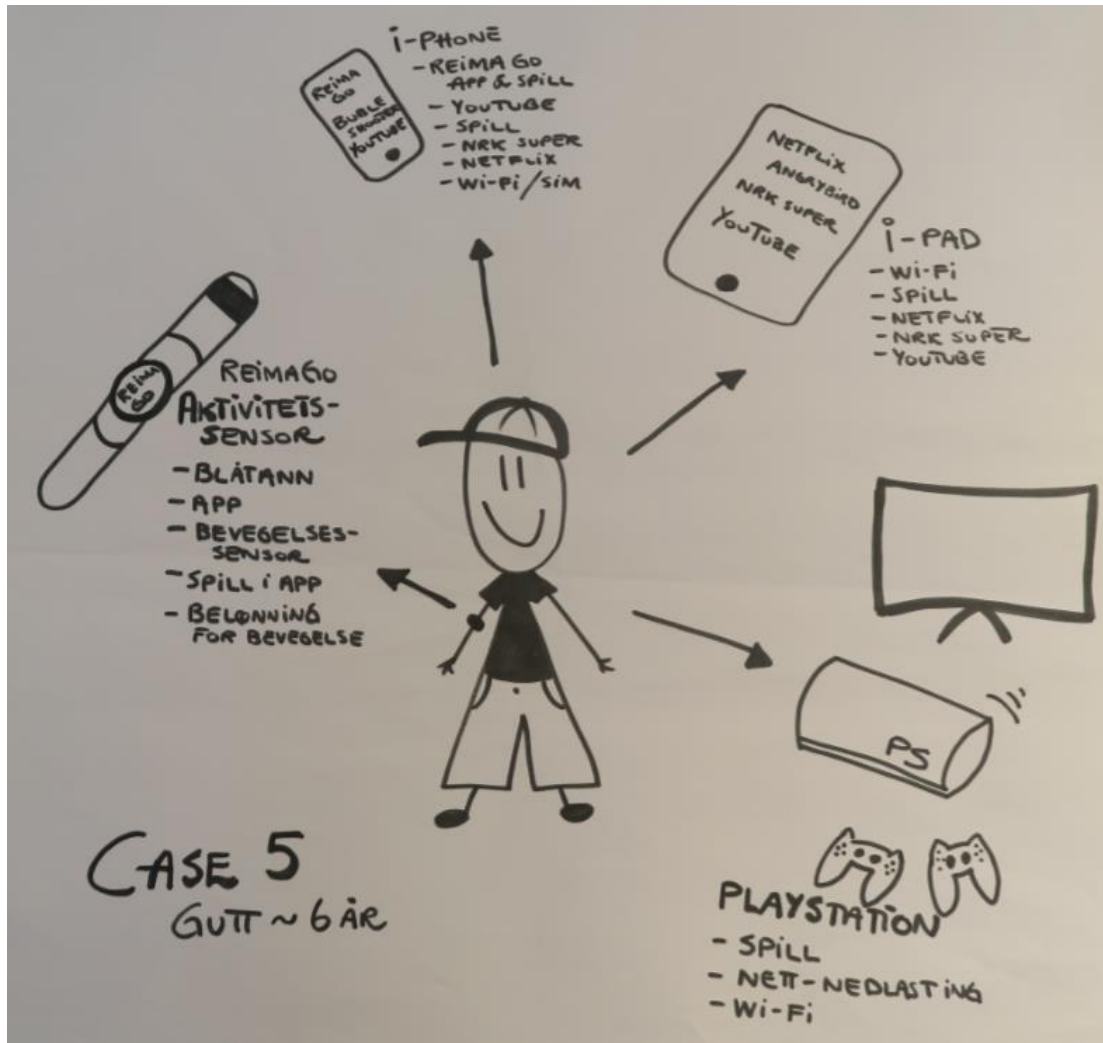 i-PHONE
- REIMA GO
APP & SPILL
- YOUTUBE
- SPILL
- NRK SUPER
- NETFLIX
- Wi-Fi/SIM
REIMA
GO
BUBLE
SHOOTER
YOUTUBE
NETFLIX
ANGRYBIRD
NRK SUPER
YOUTUBE
i-PAD
- Wi-Fi
- SPILL
- NETFLIX
- NRK SUPER
- YOUTUBE
REIMA
GO
REIMAGO
AKTIVITETS-
SENSOR
- BLÅTANN
- APP
- BEVEGELSES-
SENSOR
- SPILL I APP
- BELØNNING
FOR BEVEGELSE
PS
PLAYSTATION
- SPILL
- NETT-NEDLASTING
- Wi-Fi
CASE 5
GUTT ~ 6 ÅR